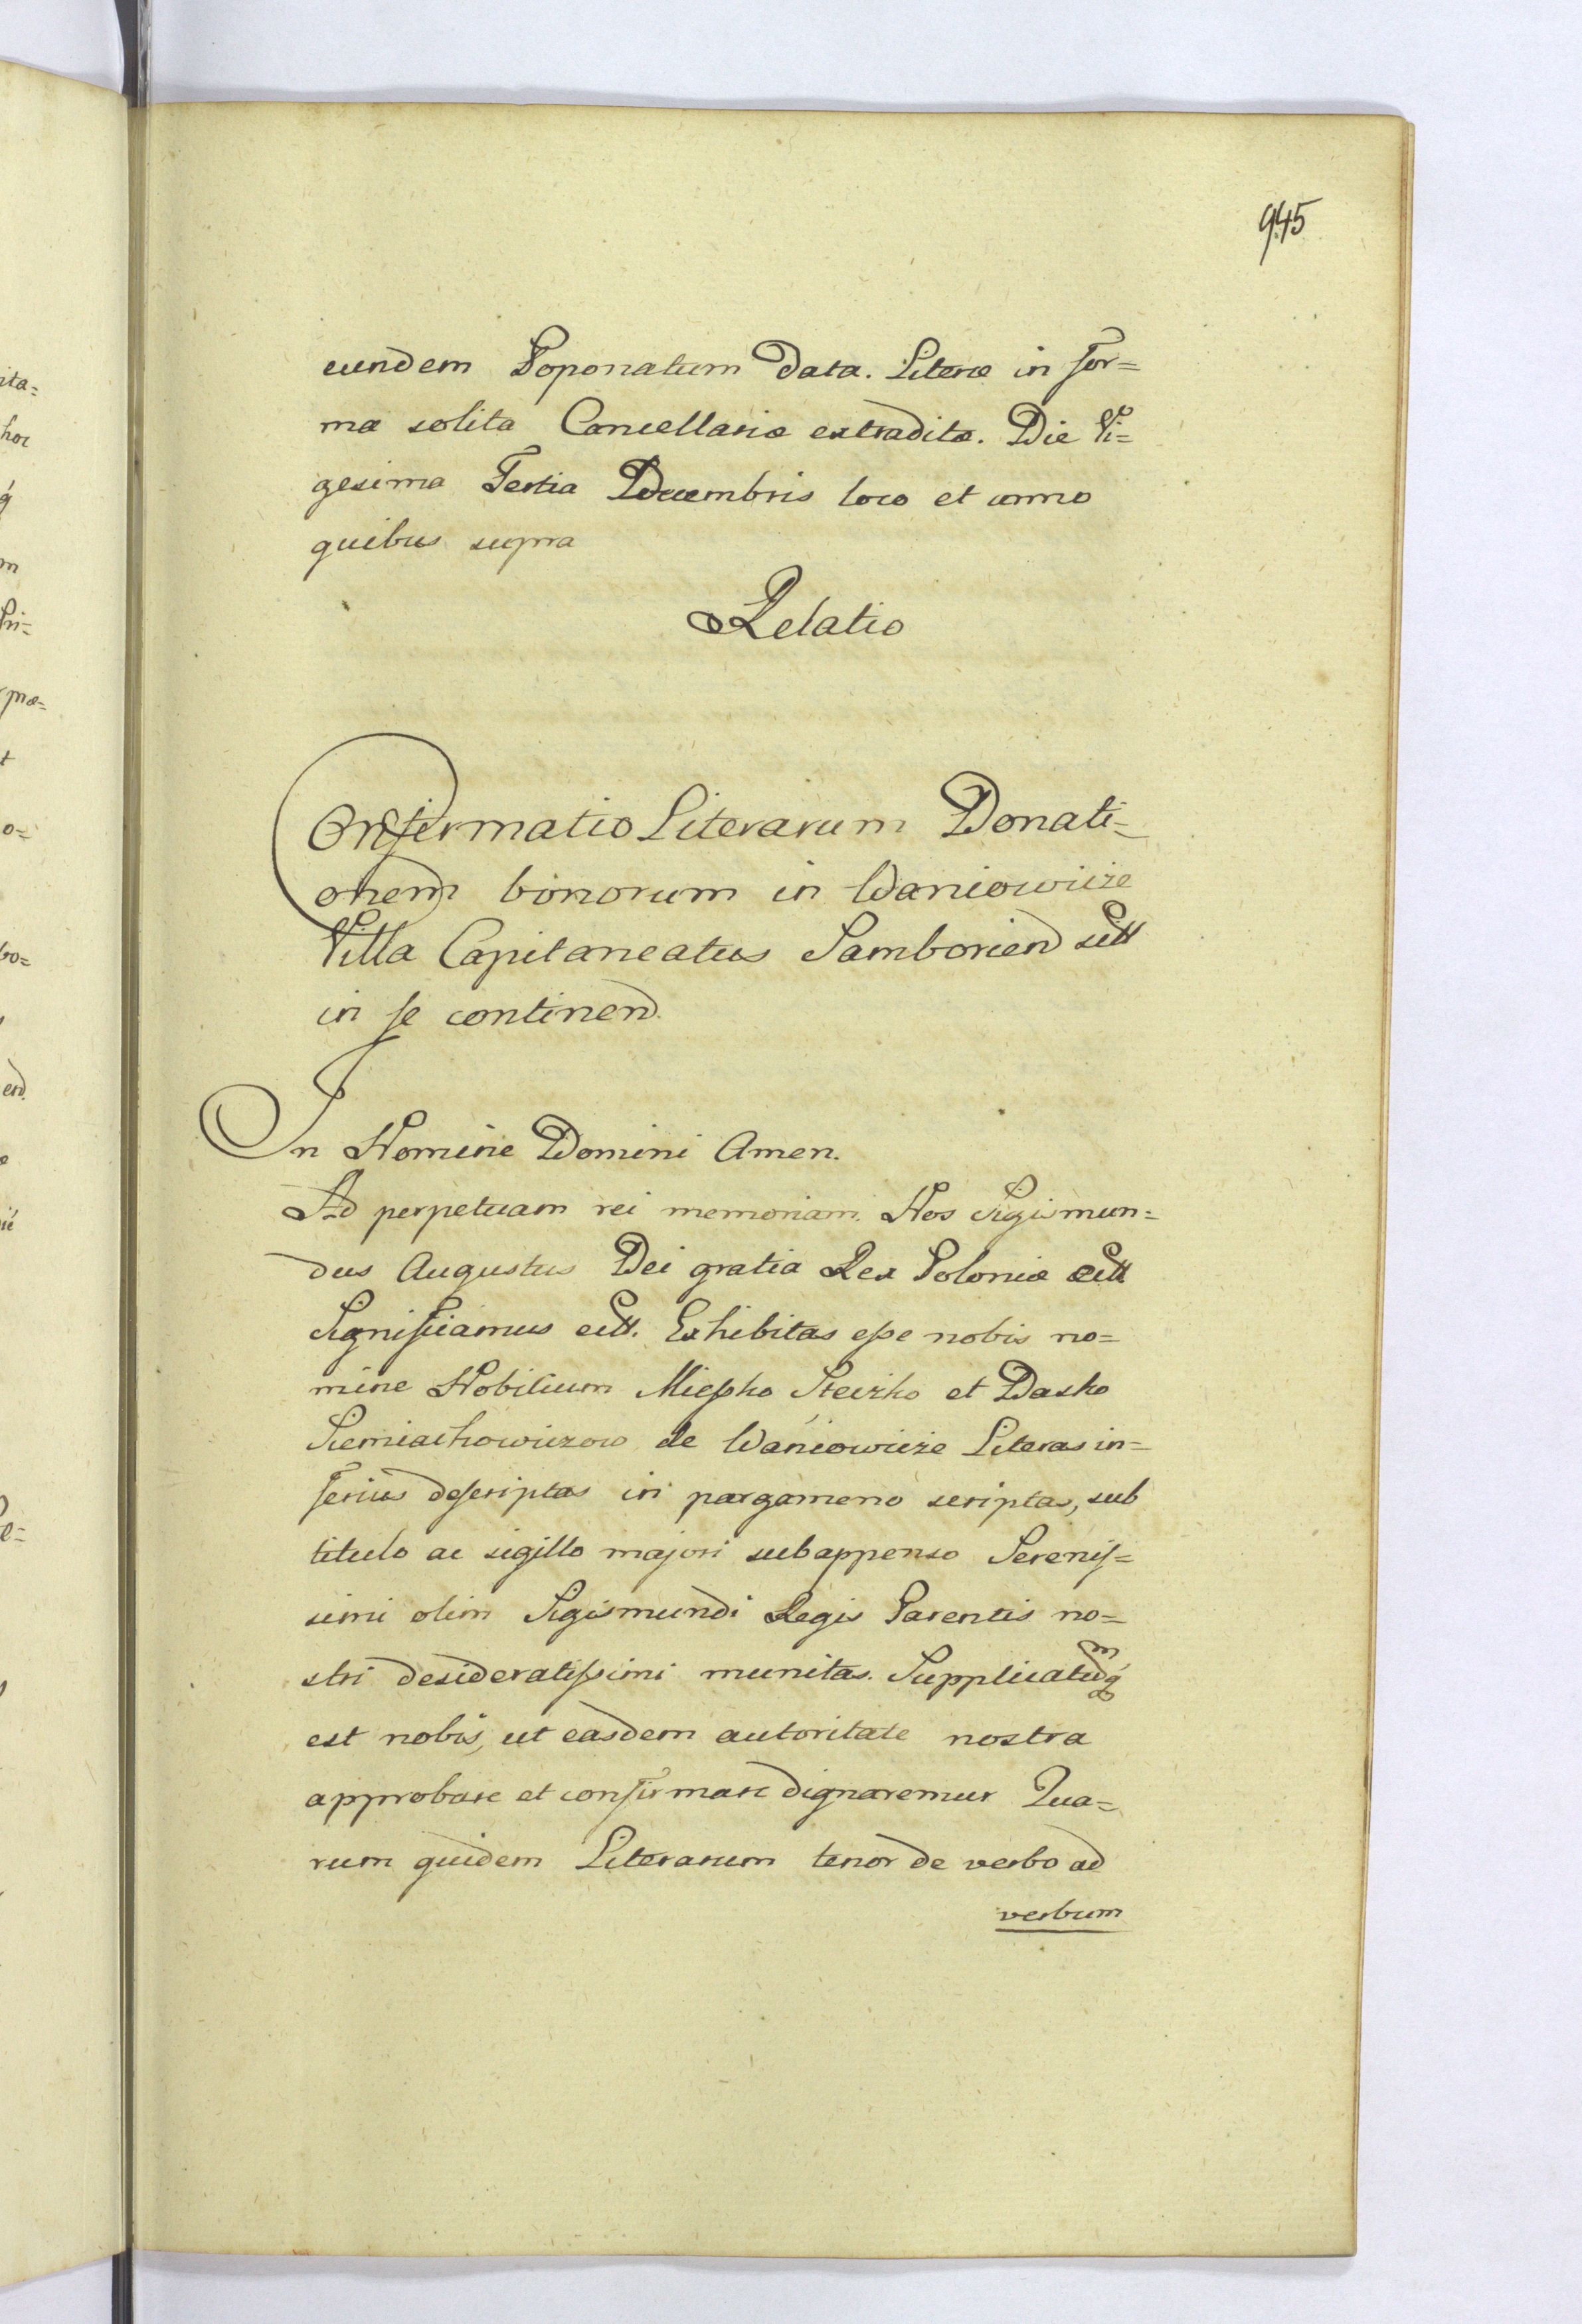 945
eundem Poponatum data. Literæ in for=
ma solita Cancellariæ extraditæ. Die Vi=
gesima Tertia Decembris loco et anno
quibus supra
Relatio
Confirmatio Literarum Donati=
onem bonorum in Waniowicze
Villa Capitaneatus Samborien sitt
in se continen.
In Nomine Domini Amen.
Ad perpetuam rei memoriam. Nos Sigismun=
dus Augustus Dei gratia Rex Poloniæ ett
Significamus ett. Exhibitas eſse nobis no=
mine Nobilium Mieſzko Steczko et Dasko
Siemiachowiczow de Waniowicze Literas in=
ferius deſcriptas in pargameno scriptas, sub
titulo ac sigillo majori subappenso Sereniſ=
simi olim Sigismundi Regis Parentis no=
stri desideratiſsimi munitas. Supplicatumq́
est nobis, ut easdem autoritate nostra
approbare et confirmare dignaremur Qua=
rum quidem Literarum tenor de verbo ad
verbum